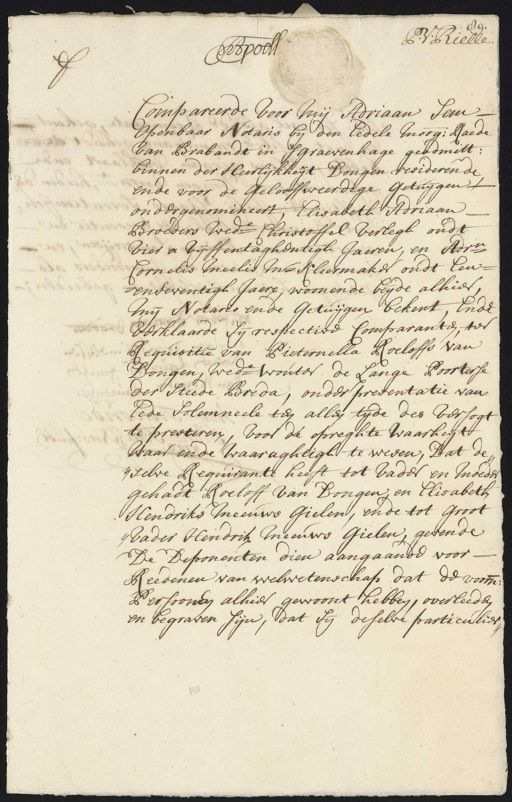 89.
P: V: Rielle
Compareerde voor mij Adriaan Sem
Openbaar Notaris bij den Edele Moog: Raede
van Brabandt in Sgraevenhage geadmitt:
binnen der Heerlijkheyt Dongen resideerende
ende voor de Geloofweerdege Getuygen
ondergenomineert, Elisabeth Adriaan
Broeders wede Christoffel Verlegh oudt
vier a vijffentaghtentigh Jaeren, en Adrn
Cornelis Meelis Mr Kleermaker oudt
endeventigh Jaere, wonende beyde alhier,
mij Notaris ende Getuijgen bekent, Ende
verklaarde sij respective Comparante, ter
Requisitie van Pieternella Roeloffs van
Dongen, wede wouter de Lange Poorterse
der Steede Breda, onder presentatie van
Eede Solemneele ten allen tyde des versogt
te presteren, voor de opreghte waarheyt
waar ende waaraghtigh te wesen, Dat de
selve Requirante heeft tot vader en moeder
gehadt Roeloff van Dongen en Elisabeth
Hendriks Meeuws Gielen, ende tot Groot
vader Hendrik Meeuws Gielen, gevende
De Deponenten dien aangaande voor
Reedenen van welwetenschap dat de voorn:
Persoonen alhier gewoont hebben, overleeden
en begraven sijn, dat sij deselve particulier